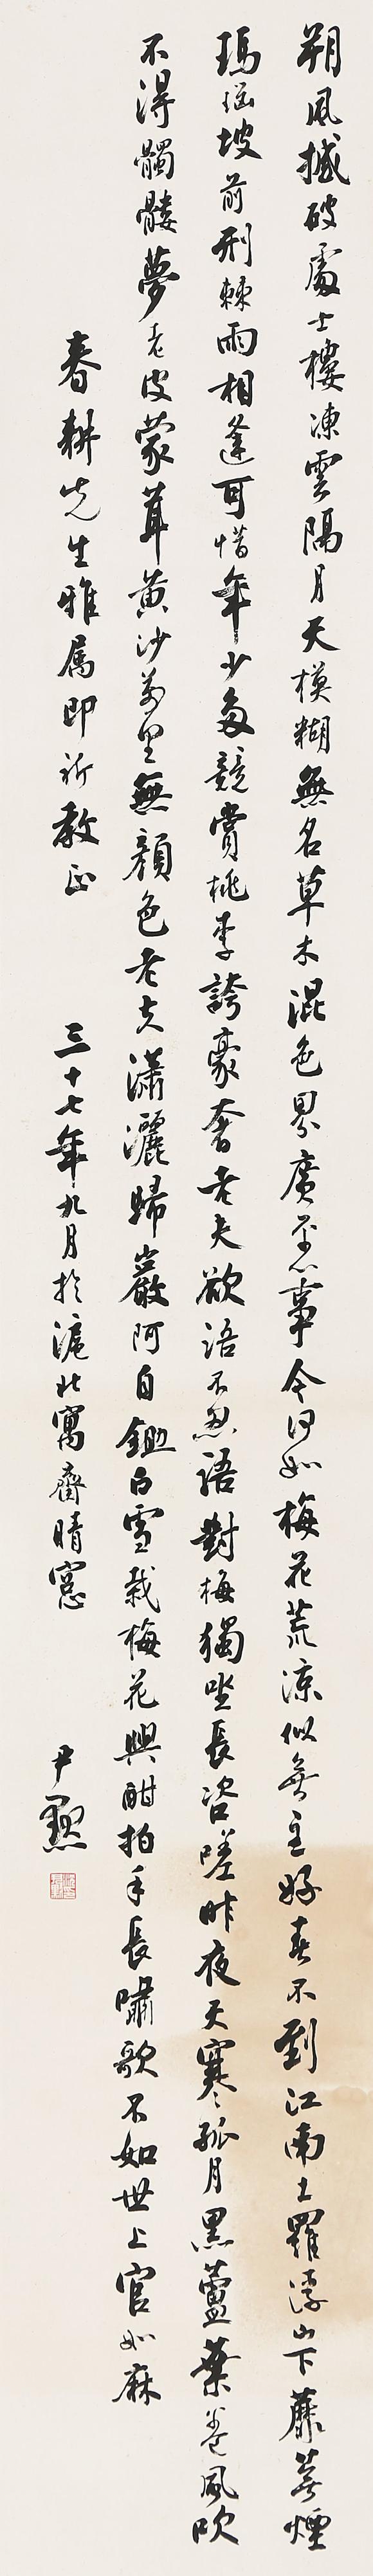 朔風撼破處士樓凍雲隔月天模糊無名草木混色界廣平心事今何如梅花荒涼似無主好春不到江南土羅浮山下蘼蕪煙
瑪瑙坡前荆棘雨相逢可惜年少多競賞桃李誇豪奢老夫欲語不忍語對梅獨坐長咨嗟昨夜天寒孤月黑蘆葉卷風吹
不得髑髏夢老皮蒙茸黃沙萬里無顏色老夫瀟灑歸巖阿自鋤白雪栽梅花興酣拍手長嘯歌不如世上官如麻
春耕先生雅屬即祈教正
三十七年九月於滬北寓齋晴窗
尹默